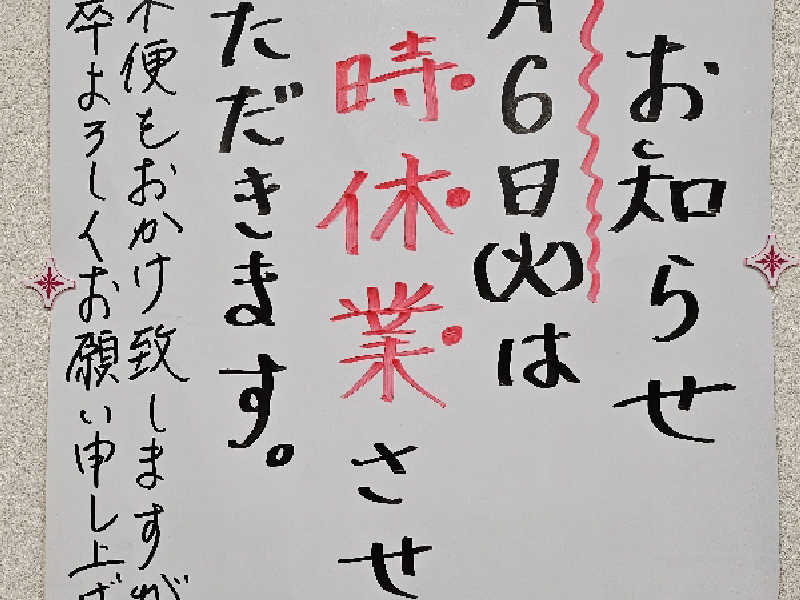 お知らせ
月6日(火)は
時休業させ
ただきます。
不便もおかけ致しますが
卒よろしくお願い申し上げ